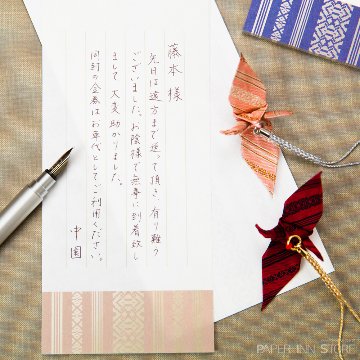 藤本様
先日は遠方まで送って頂き、有り難う
ございました。お陰様で無事に到着致し
まして大変助かりました。
同封の金券はお車代としてご利用ください。
中園
PAPER INN STORE